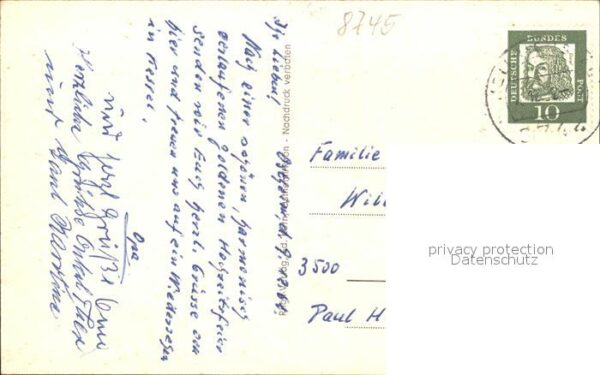 8745
DEUTSCHE
BUNDES
POST
10
Ihr Lieben!
Nach einer schönen, harmonisch
verlaufenen goldenen Hochzeitsfeier
senden wir Euch herzl. Grüsse von
hier und freuen uns auf ein Wiedersehen
in Kassel.
Opa
und herzl Grüße Omi
Herzliche Grüße Onkel
und Tante
Nachdruck verboten
Familie
Will
3500
Paul H
privacy protection
Datenschutz